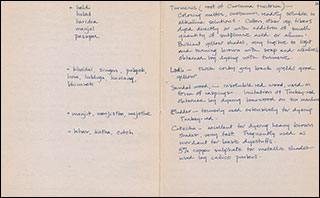 * haldi
halad
haridra
manjal
pasupu
* bhaulai singen, palyok,
lodh,
bhumseti
* manjit, manjistha, majethi
* khair, katha, cutch
Turmeric (root of Curcuma tinctoria) —
Coloring matter, curcumin, readily soluble in
alkaline solutions. Cotton other veg. fibers
dyed directly or with addition of small
quantity of sulphuric acid or alum.
Brilliant yellow shades, very fugitive to light
and turning brown with soap and alkalies,
obtained by dyeing with turmeric.
Lodh — thick corky grey bark yields good
yellow
Sandal wood — insoluble red wood, used in
form of raspings. Imitation of Turkey-red
obtained by dyeing
formerly used extensively for dyeing
Turkey-red.
Catechu — excellent for dyeing heavy brown
shades, very fast. Frequently used as
mordant for basic dyestuffs.
5% copper sulphate for metallic shades —
used by calico printers.